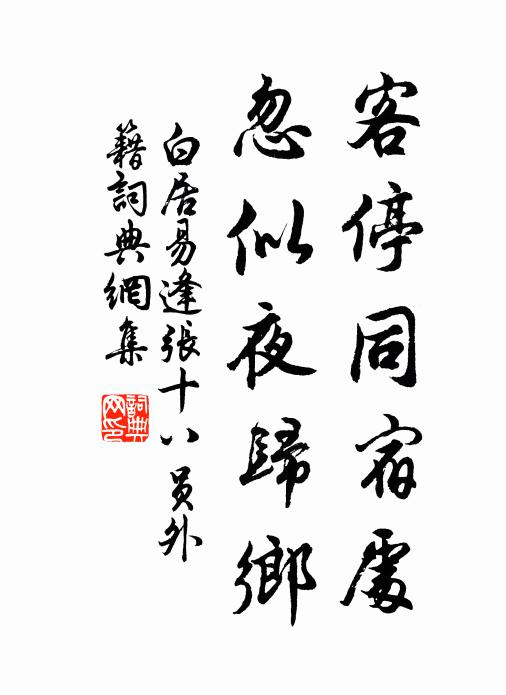 客停同宿處
忽似夜歸鄉
白居易逢張十八員外
籍詞典網集
詞典
网印